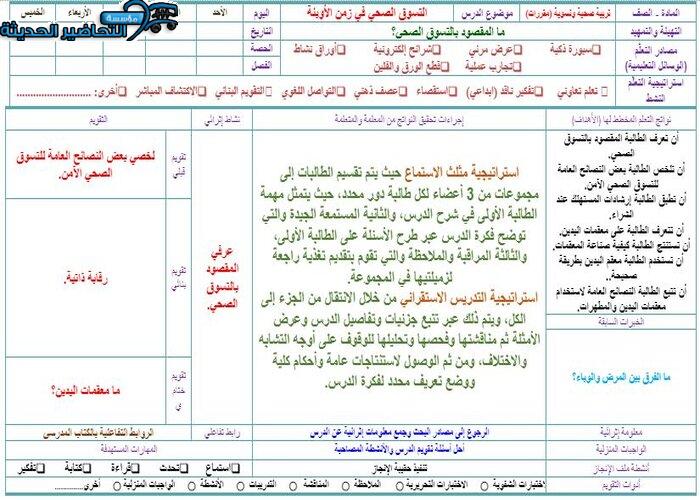 المادة ـ الصف
تربية صحية ونسوية (مقررات)
موضوع الدرس
التسوق الصحي في زمن الأوبئة
اليوم
الأحد
الأربعاء
الخميس
مؤسسة
التحاضير الحديثة
التهيئة والتمهيد
ما المقصود بالتسوق الصحي؟
التاريخ
مصادر التعلم
(الوسائل التعليمية)
□سبورة ذكية □عرض مرئي □شرائح إلكترونية □أوراق نشاط
□تجارب عملية □قطع الورق والفلين
الحصة
الفصل
استراتيجية التعلم
النشط
□ تعلم تعاوني □تفكير ناقد (ابداعي) □استقصاء □عصف ذهني □التواصل اللغوي □التقويم البنائي □الاكتشاف المباشر □أخرى: ............................
نواتج التعلم المخطط لها (الأهداف)
إجراءات تحقيق النواتج من المعلمة والمتعلمة
نشاط إثرائي
التقويم
أن تعرف الطالبة المقصود بالتسوق
الصحي.
أن تلخص الطالبة بعض النصائح العامة
للتسوق الصحي الآمن.
أن تطبق الطالبة إرشادات المستهلك عند
الشراء.
أن تتعرف الطالبة على معقمات اليدين.
أن تستنتج الطالبة كيفية صناعة المعقمات.
أن تستخدم الطالبة معقم اليدين بطريقة
صحيحة..
أن تتبع الطالبة النصائح العامة لاستخدام
معقمات اليدين والمطهرات.
الخبرات السابقة
ما الفرق بين المرض والوباء؟
استراتيجية مثلث الاستماع حيث يتم تقسيم الطالبات إلى
مجموعات من 3 أعضاء لكل طالبة دور محدد، حيث يتمثل مهمة
الطالبة الأولى في شرح الدرس، والثانية المستمعة الجيدة والتي
توضح فكرة الدرس عبر طرح الأسئلة على الطالبة الأولى،
والثالثة المراقبة والملاحظة والتي تقوم بتقديم تغذية راجعة
لزميلتيها في المجموعة.
استراتيجية التدريس الاستقرائي من خلال الانتقال من الجزء إلى
الكل، ويتم ذلك عبر تتبع جزئيات وتفاصيل الدرس وعرض
الأمثلة ثم مناقشتها وفحصها وتحليلها للوقوف على أوجه التشابه
والاختلاف، ومن ثم الوصول لاستنتاجات عامة وأحكام كلية
ووضع تعريف محدد لفكرة الدرس.
عرفي
المقصود
بالتسوق
الصحي.
تقويم
قبلي
لخصي بعض النصائح العامة للتسوق
الصحي الآمن.
تقويم
بنائي
رقابة ذاتية.
تقويم
ختام
ي
ما معقمات اليدين؟
معلومة إثرائية
الرجوع إلى مصادر البحث وجمع معلومات إثرائية عن الدرس
رابط تفاعلي
الروابط التفاعلية بالكتاب المدرسي
الواجبات المنزلية
أحل أسئلة تقويم الدرس والأنشطة المصاحبة
المهارات المستهدفة
أنشطة ملف الإنجاز
تنفيذ حقيبة الإنجاز
□استماع □تحدث □قراءة □كتابة □تفكير
أدوات التقويم
○اختبارات الشفوية ○الاختبارات التحريرية ○الملاحظة ○المناقشة ○التدريبات ○الأنشطة ○الواجبات المنزلية ○أخرى..............